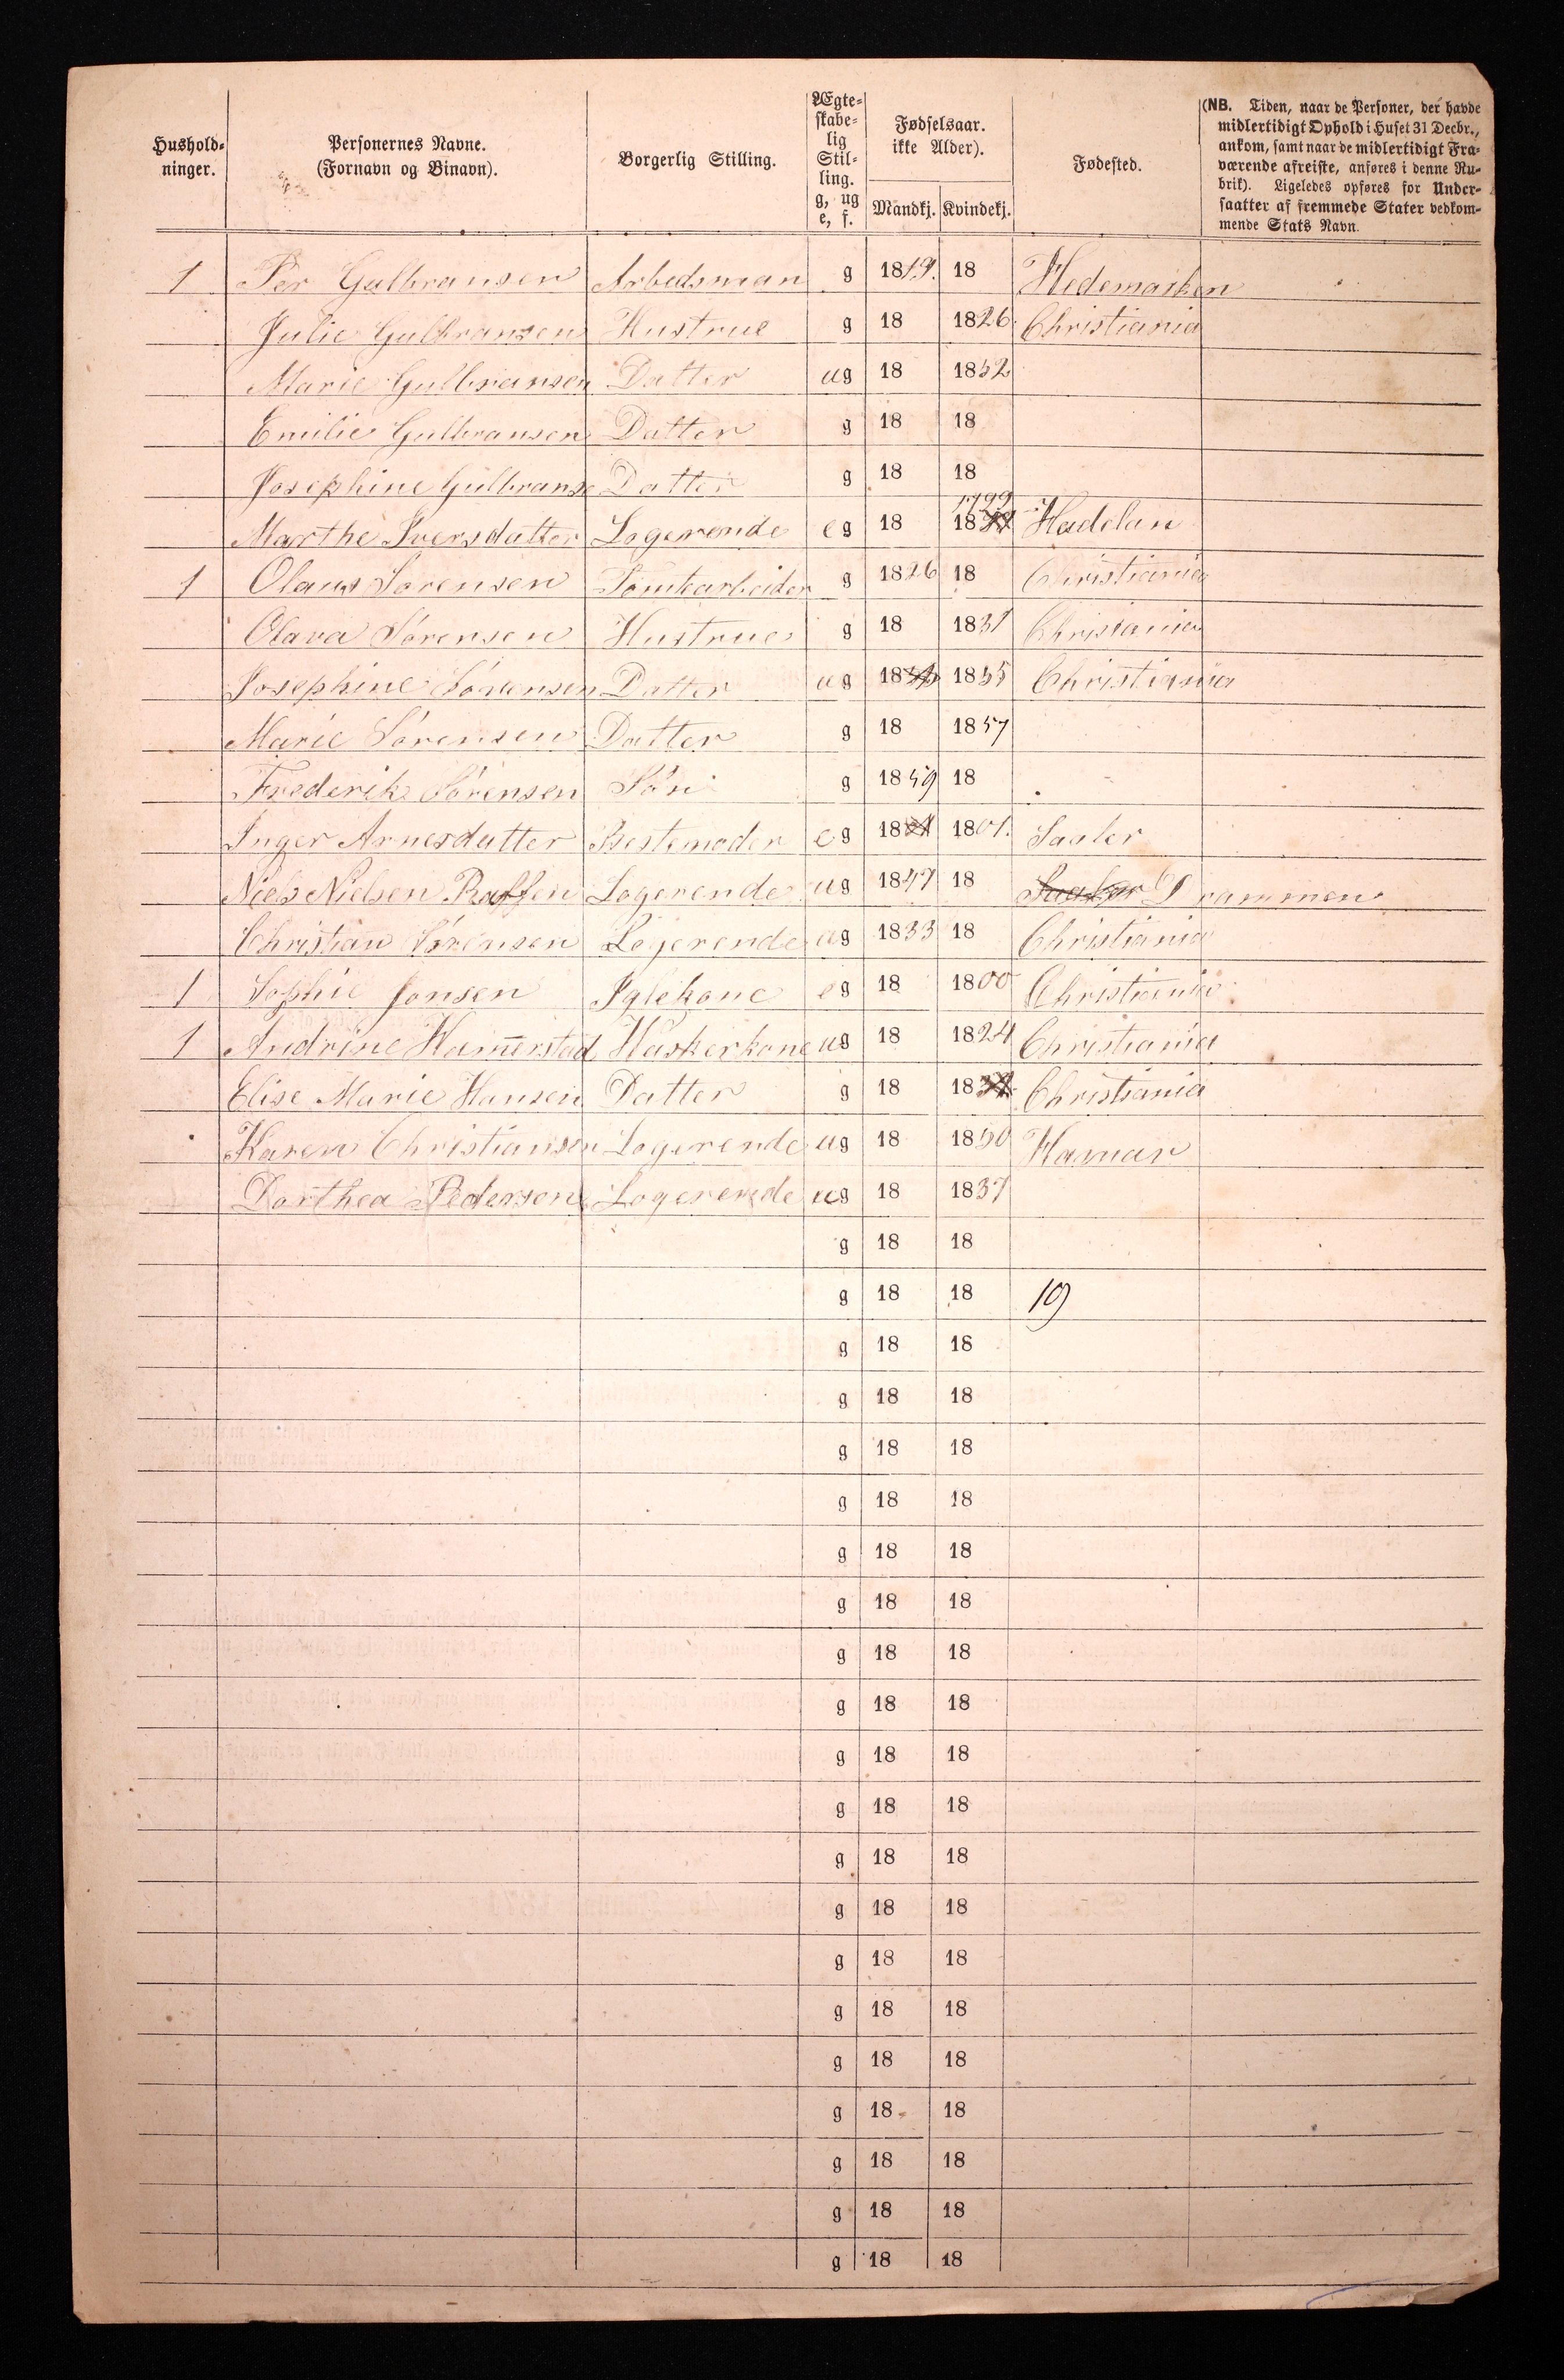 Hushold-
ninger.
Personernes Navne.
(Fornavn og Binavn).
Borgerlig Stilling.
Ægte-
skabe-
lig
Stil-
ling.
g, ug
e, f.
Fødselsaar.
ikke Alder).
Mandkj. Kvindekj.
Fødested.
(NB. Tiden, naar de Personer, der havde
midlertidigt Ophold i Huset 31 Decbr.,
ankom, samt naar de midlertidigt Fra-
værende afreiste, anføres i denne Ru-
brik). Ligeledes opføres for Under-
saatter af fremmede Stater vedkom-
mende Stats Navn.
1 Per Gulbransen Arbudsman g 1819. 18 Hedemarken
Julie Gulbransen Hustrue g 18 1826. Christiania
Marie Gulbransen Datter ug 18 1852
Emilie Gulbransen Datter g 18 18
Josephine Gulbranse Datter g 18 18
1799
Marthe Iversdatter Logerende eg 18 18 Hadelan
1 Olaus Sørensen Tomtearbeider g 1826 18 Christiania
Olava Sørensen Hustrue g 18 1831 Chrisiania
Josephine Sørensen Datter ug 18 1855 Christiania
Marie Sørensen Datter g 18 1857
Frederik Sørensen Søn g 1859 18
Inger Arnesdatter Bestemoder eg 18 1801. Saaler
Niels Nielsen Logerende ug 1847 18 Drammen
Christian Sørensen Logerende ug 1833 18 Christiania
1 Sophie Jonsen Iglekone eg 18 1800 Christiania
1 Andrine Hamerstad Waskerkone ug 18 1824 Christiania
Elise Marie Hansen Datter g 18 18 Christiania
Karen Christiansen Logerende ug 18 1850 Hamar
Dorthea Pedersen Logerende ug 18 1837
g 18 18
g 18 18 19
g 18 18
g 18 18
g 18 18
g 18 18
g 18 18
g 18 18
g 18 18
g 18 18
g 18 18
g 18 18
g 18 18
g 18 18
g 18 18
g 18 18
g 18 18
g 18 18
g 18 18
g 18 18
g 18 18